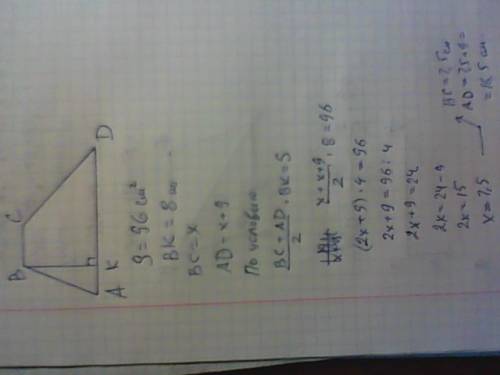 B C
A K D
S = 96 см²
BK = 8 см
BC = x
AD = x + 9
По условию
(BC + AD)/2 · BK = S
(x + x + 9)/2 · 8 = 96
(2x + 9) · 4 = 96
2x + 9 = 96 : 4
2x + 9 = 24
2x = 24 - 9
2x = 15
x = 7,5 → BC = 7,5 см
AD = 7,5 + 9 =
= 16,5 см